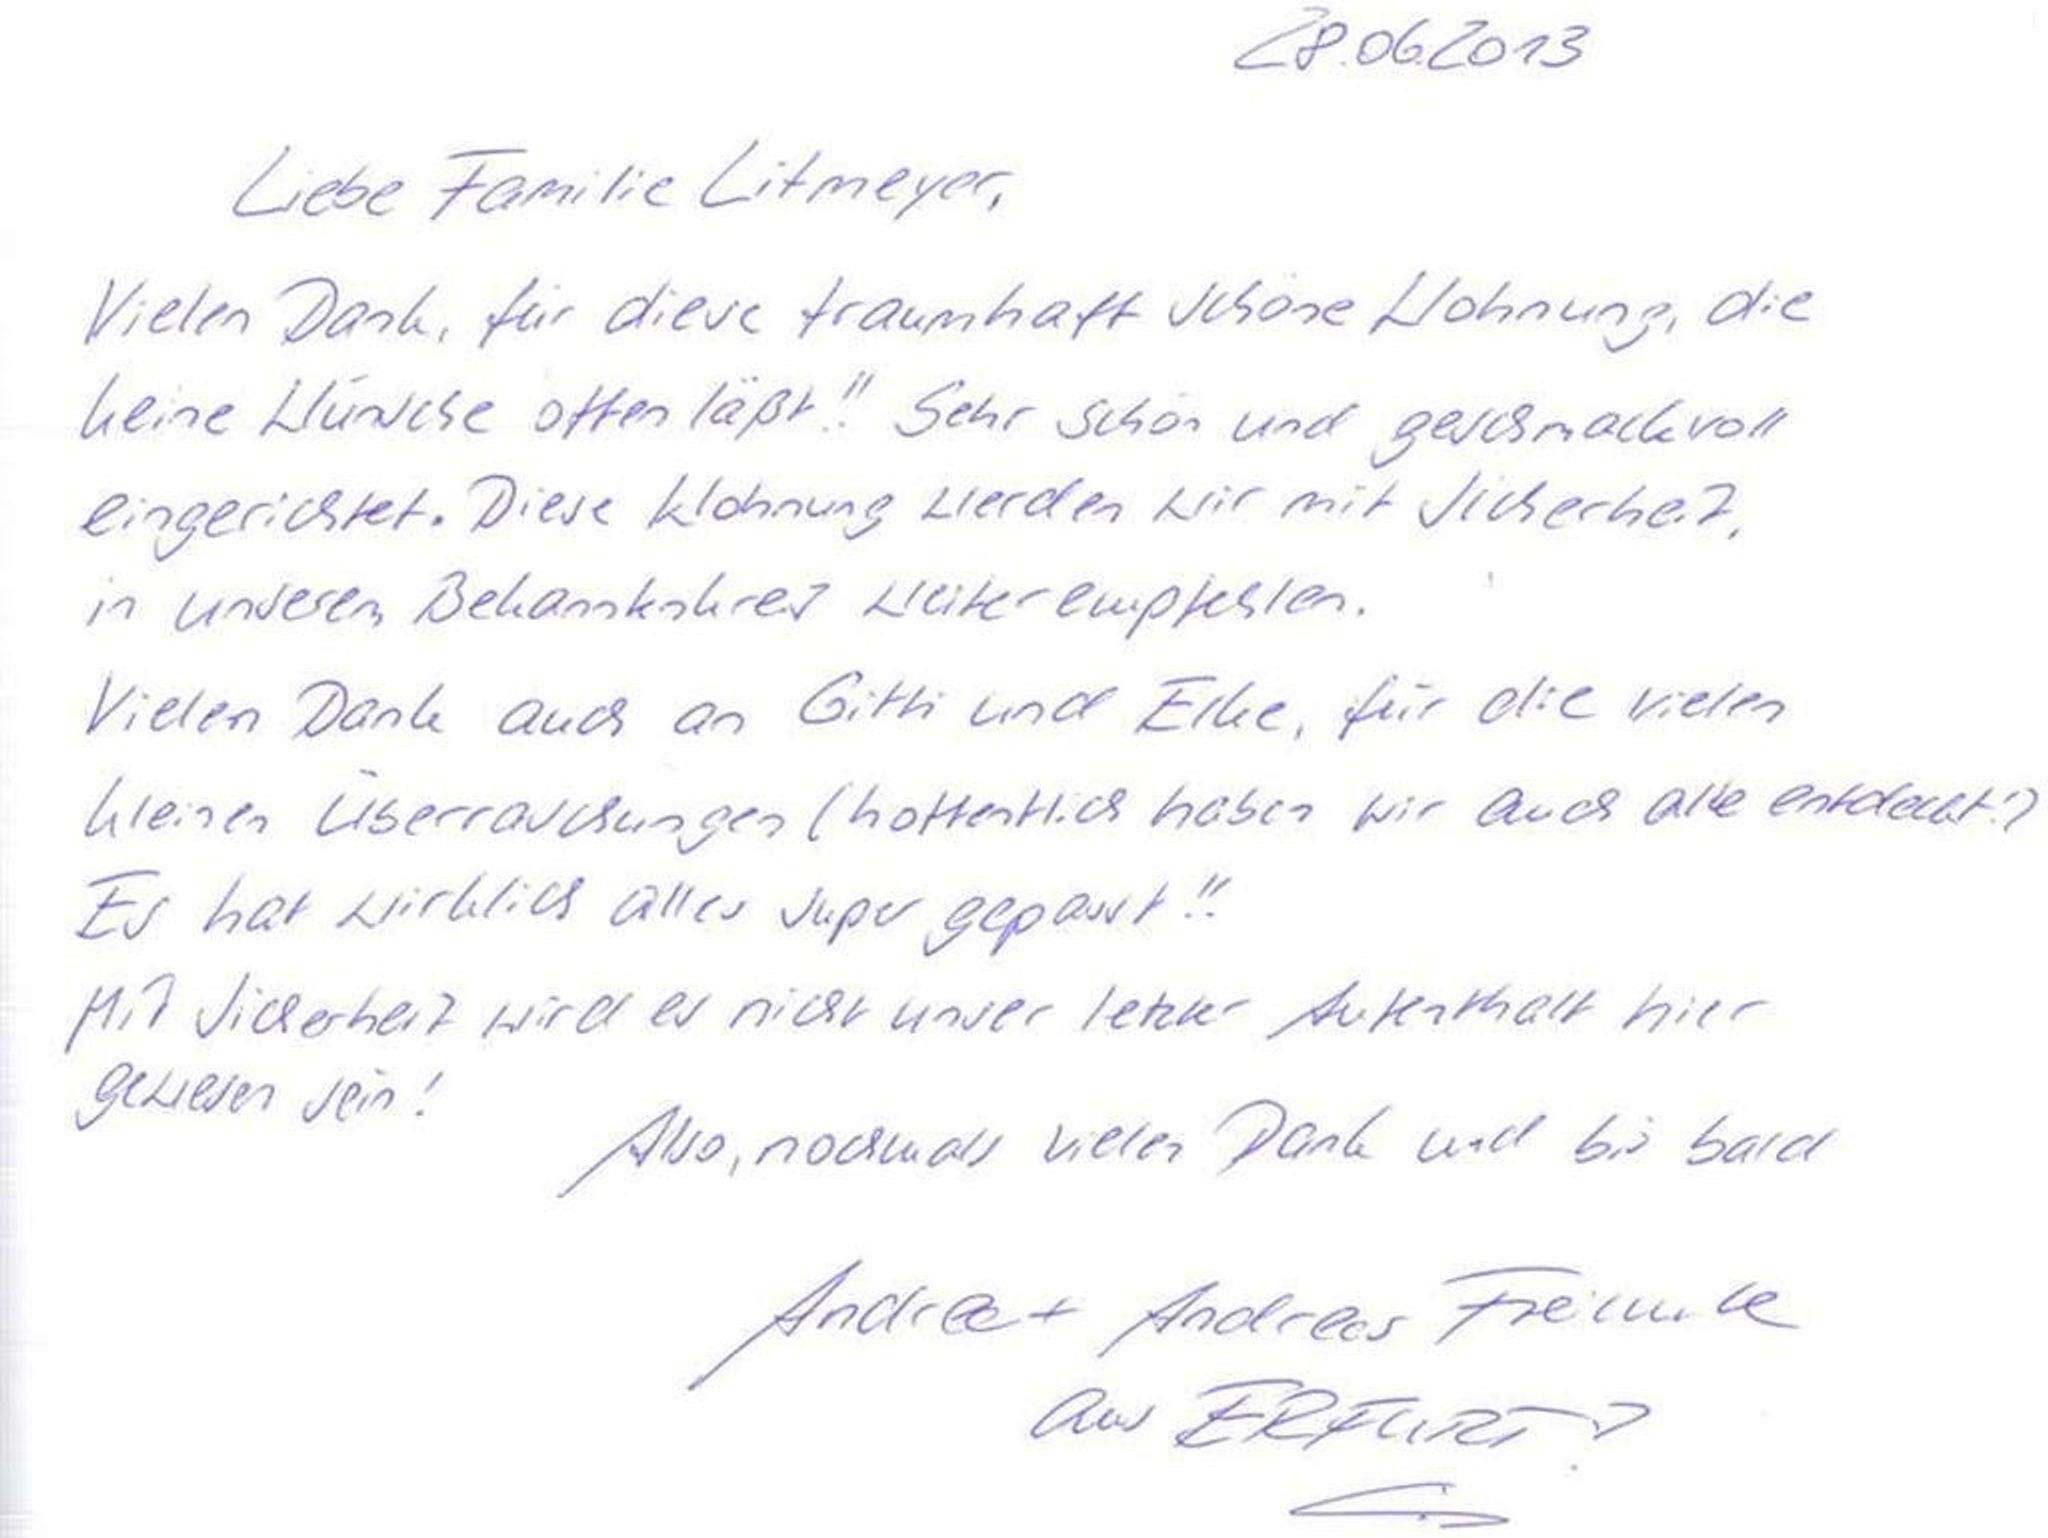 28.06.2013
Liebe Familie Litmeyer,
Vielen Dank, für diese traumhaft schöne Wohnung, die
keine Wünsche offen läßt!! Sehr schön und geschmackvoll
eingerichtet. Diese Wohnung werden wir mit Sicherheit,
in unserem Bekanntenkreis weiterempfehlen.
Vielen Dank auch an Gitti und Elke, für die vielen
kleinen Überraschungen (hoffentlich haben wir auch alle entdeckt?)
Es hat wirklich alles super gepasst!!
Mit Sicherheit wird es nicht unser letzter Aufenthalt hier
gewesen sein!
Also, nochmals vielen Dank und bis bald
Andrea + Andreas
aus ERFURT